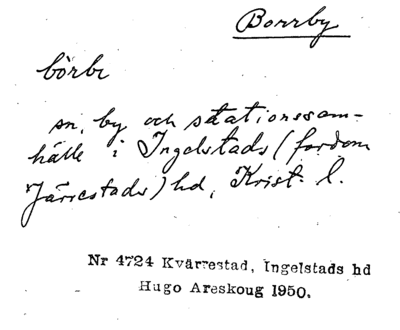 Borrby
börbi
sn, by och stationssam-
hälle i Ingelstads (fordom
Järrestads) hd, Krist. l.
Nr 4724 Kvärrestad, Ingelstads hd
Hugo Areskoug 1950.